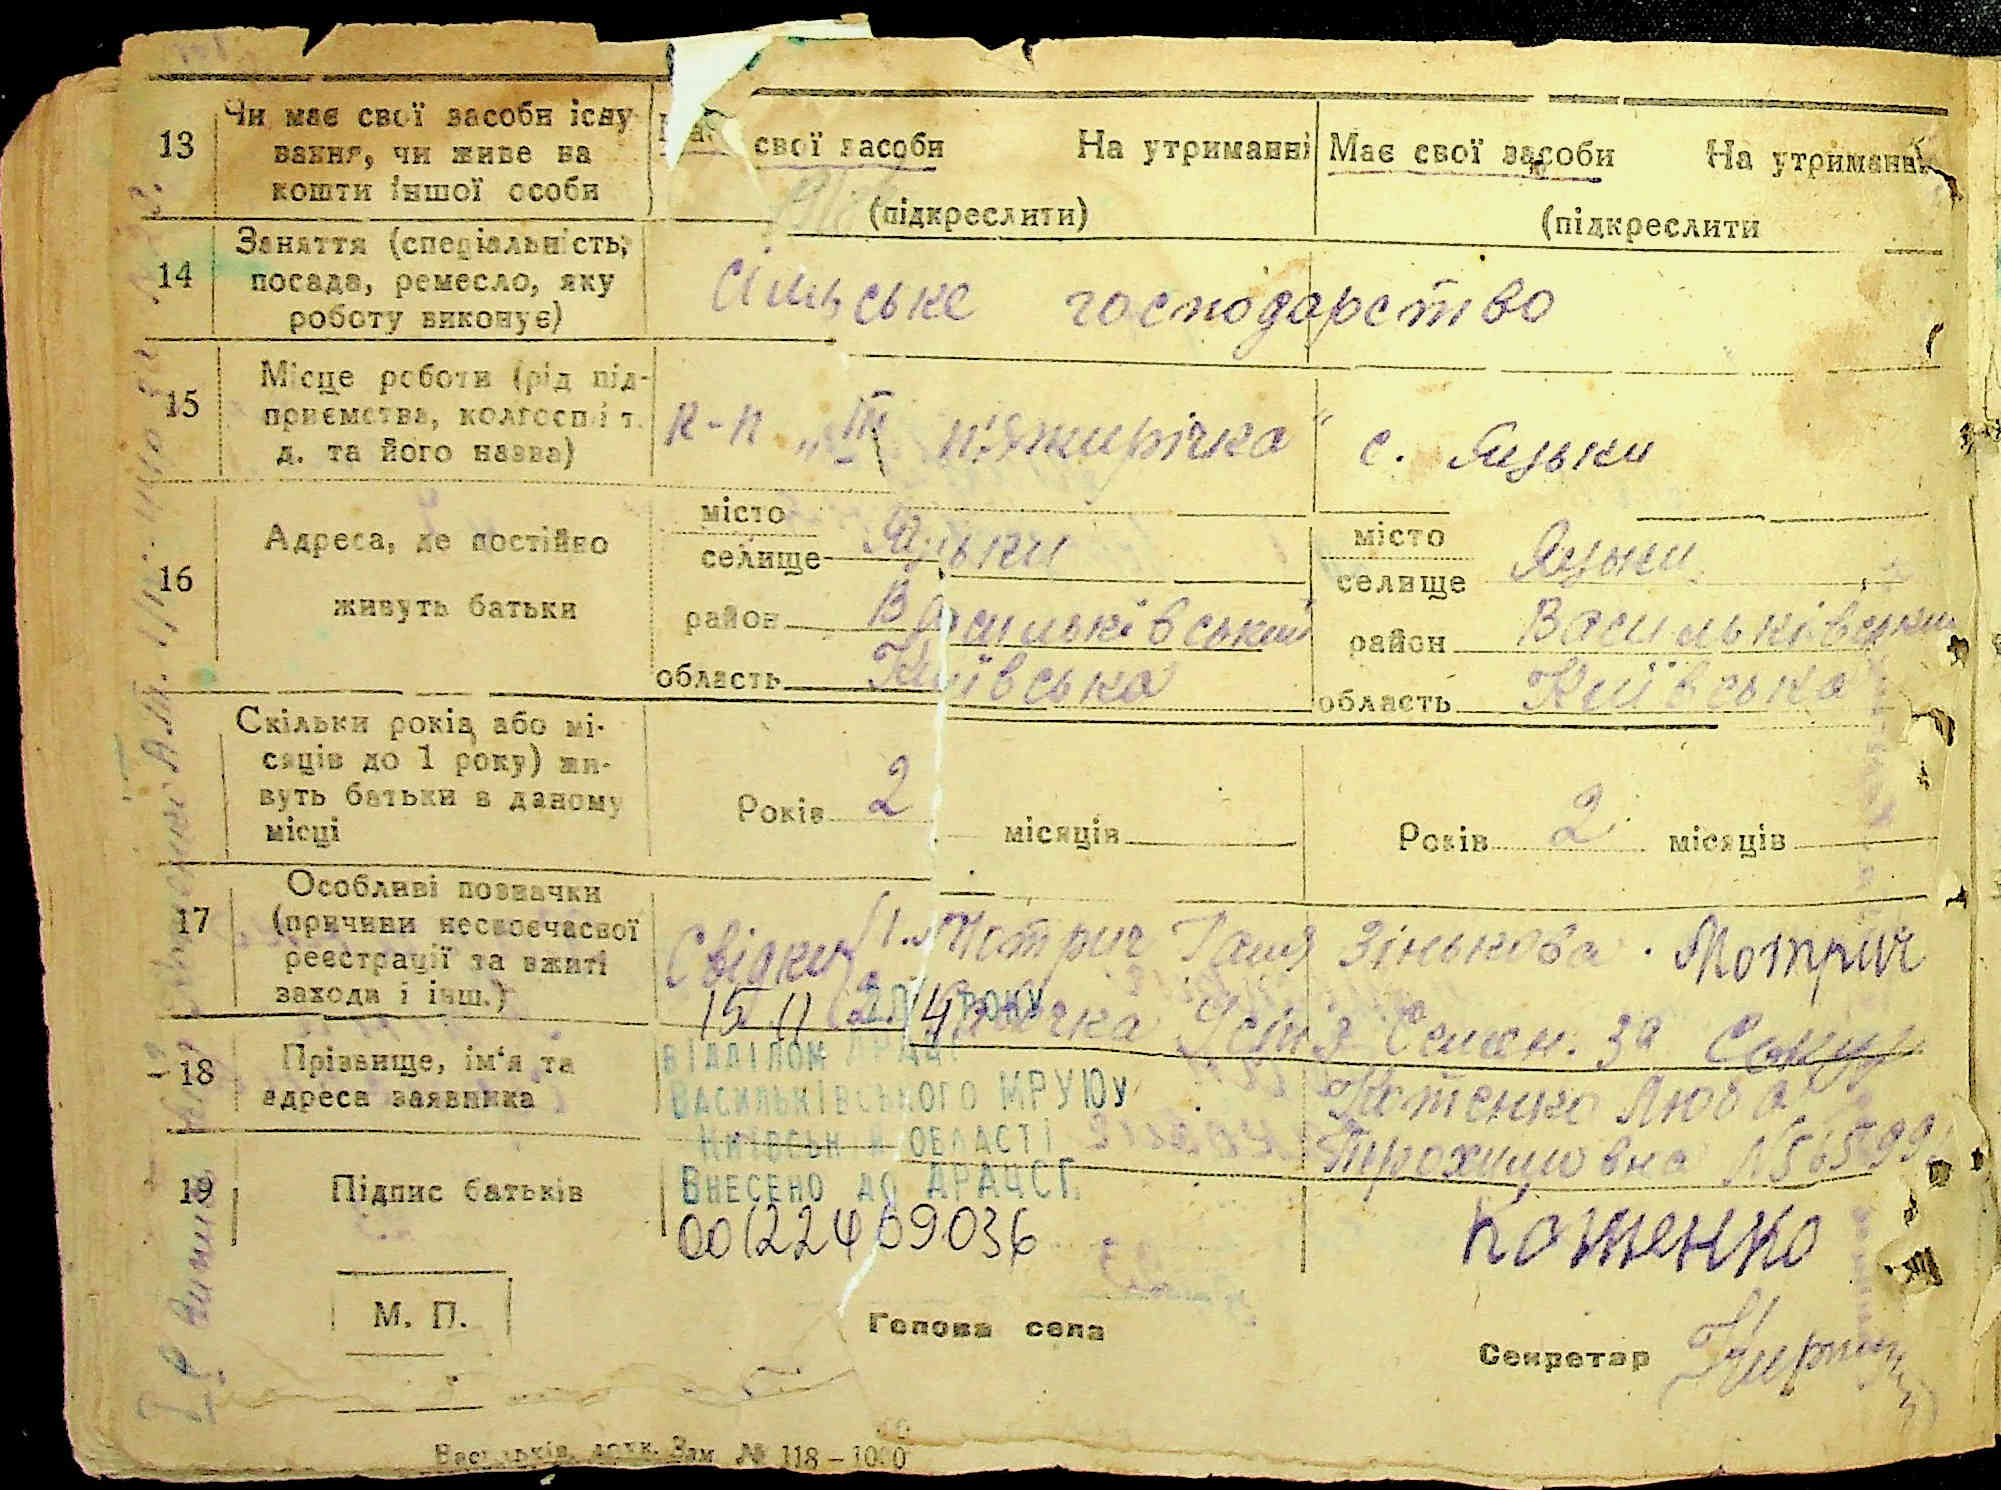 13
Чи має свої засоби існу
вання, чи живе на
кошти іншої особи
свої засоби На утриманні
(підкреслити)
Має свої засоби На утриманні
(підкреслити
14
Заняття (спеціальність,
посада, ремесло, яку
роботу виконує)
сільське господарство
15
Місце роботи (рід під-
приємства, колгосп і т.
д. та його назва)
к-п „III п'ятирічка"
с. Яцьки
16
Адреса, де постійно
живуть батьки
місто
селище Яцьки
район Васильківський
область Київська
місто
селище Яцьки
район Васильківський
область Київська
Скільки років або мі-
сяців до 1 року) жи-
вуть батьки в даному
місці
Років 2 місяців
Років 2 місяців
17
Особливі позначки
(причини несвоєчасної
реєстрації та вжиті
заходи і інш.)
Свідки 1. Мотрич Ганя Зінькова. Мотрич
2. Устя Семен. за
15 11 року
18
Прізвище, ім'я та
адреса заявника
відділом ДРАЦС
Васильківського МРУЮ у
Київській області
Внесено до ДРАЦСГ
00122409036
Люба
Трохимовна
19
Підпис батьків
Котенко
М. П.
Голова села
Секретар
Зам № 118 – 1000